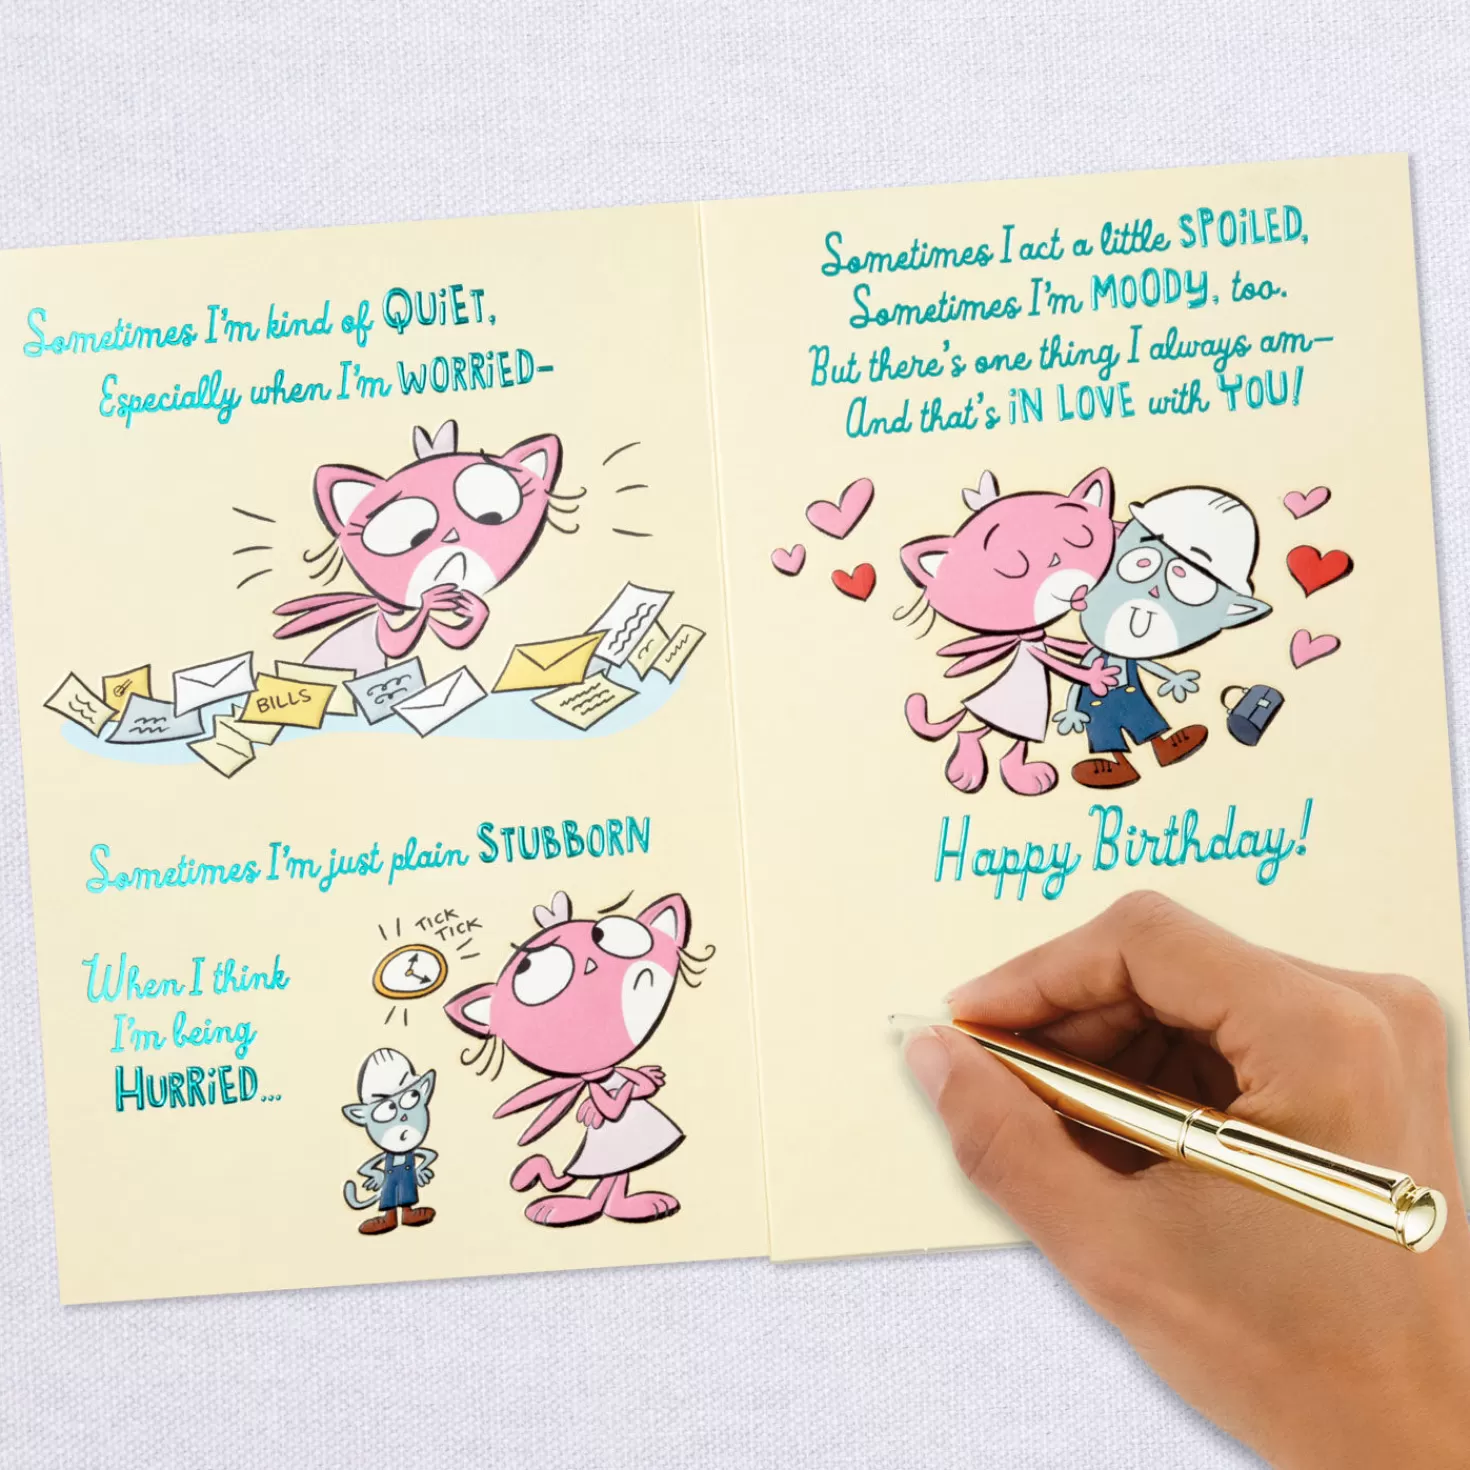 Sometimes I'm kind of QUiET,
Especially when I'm WORRiED–
BILLS
Sometimes I'm just plain STUBBORN
TICK
TICK
When I think
I'm being
HURRiED...
Sometimes I act a little SPOiLED,
Sometimes I'm MOODY, too.
But there's one thing I always am–
And that's iN LOVE with YOU!
Happy Birthday!